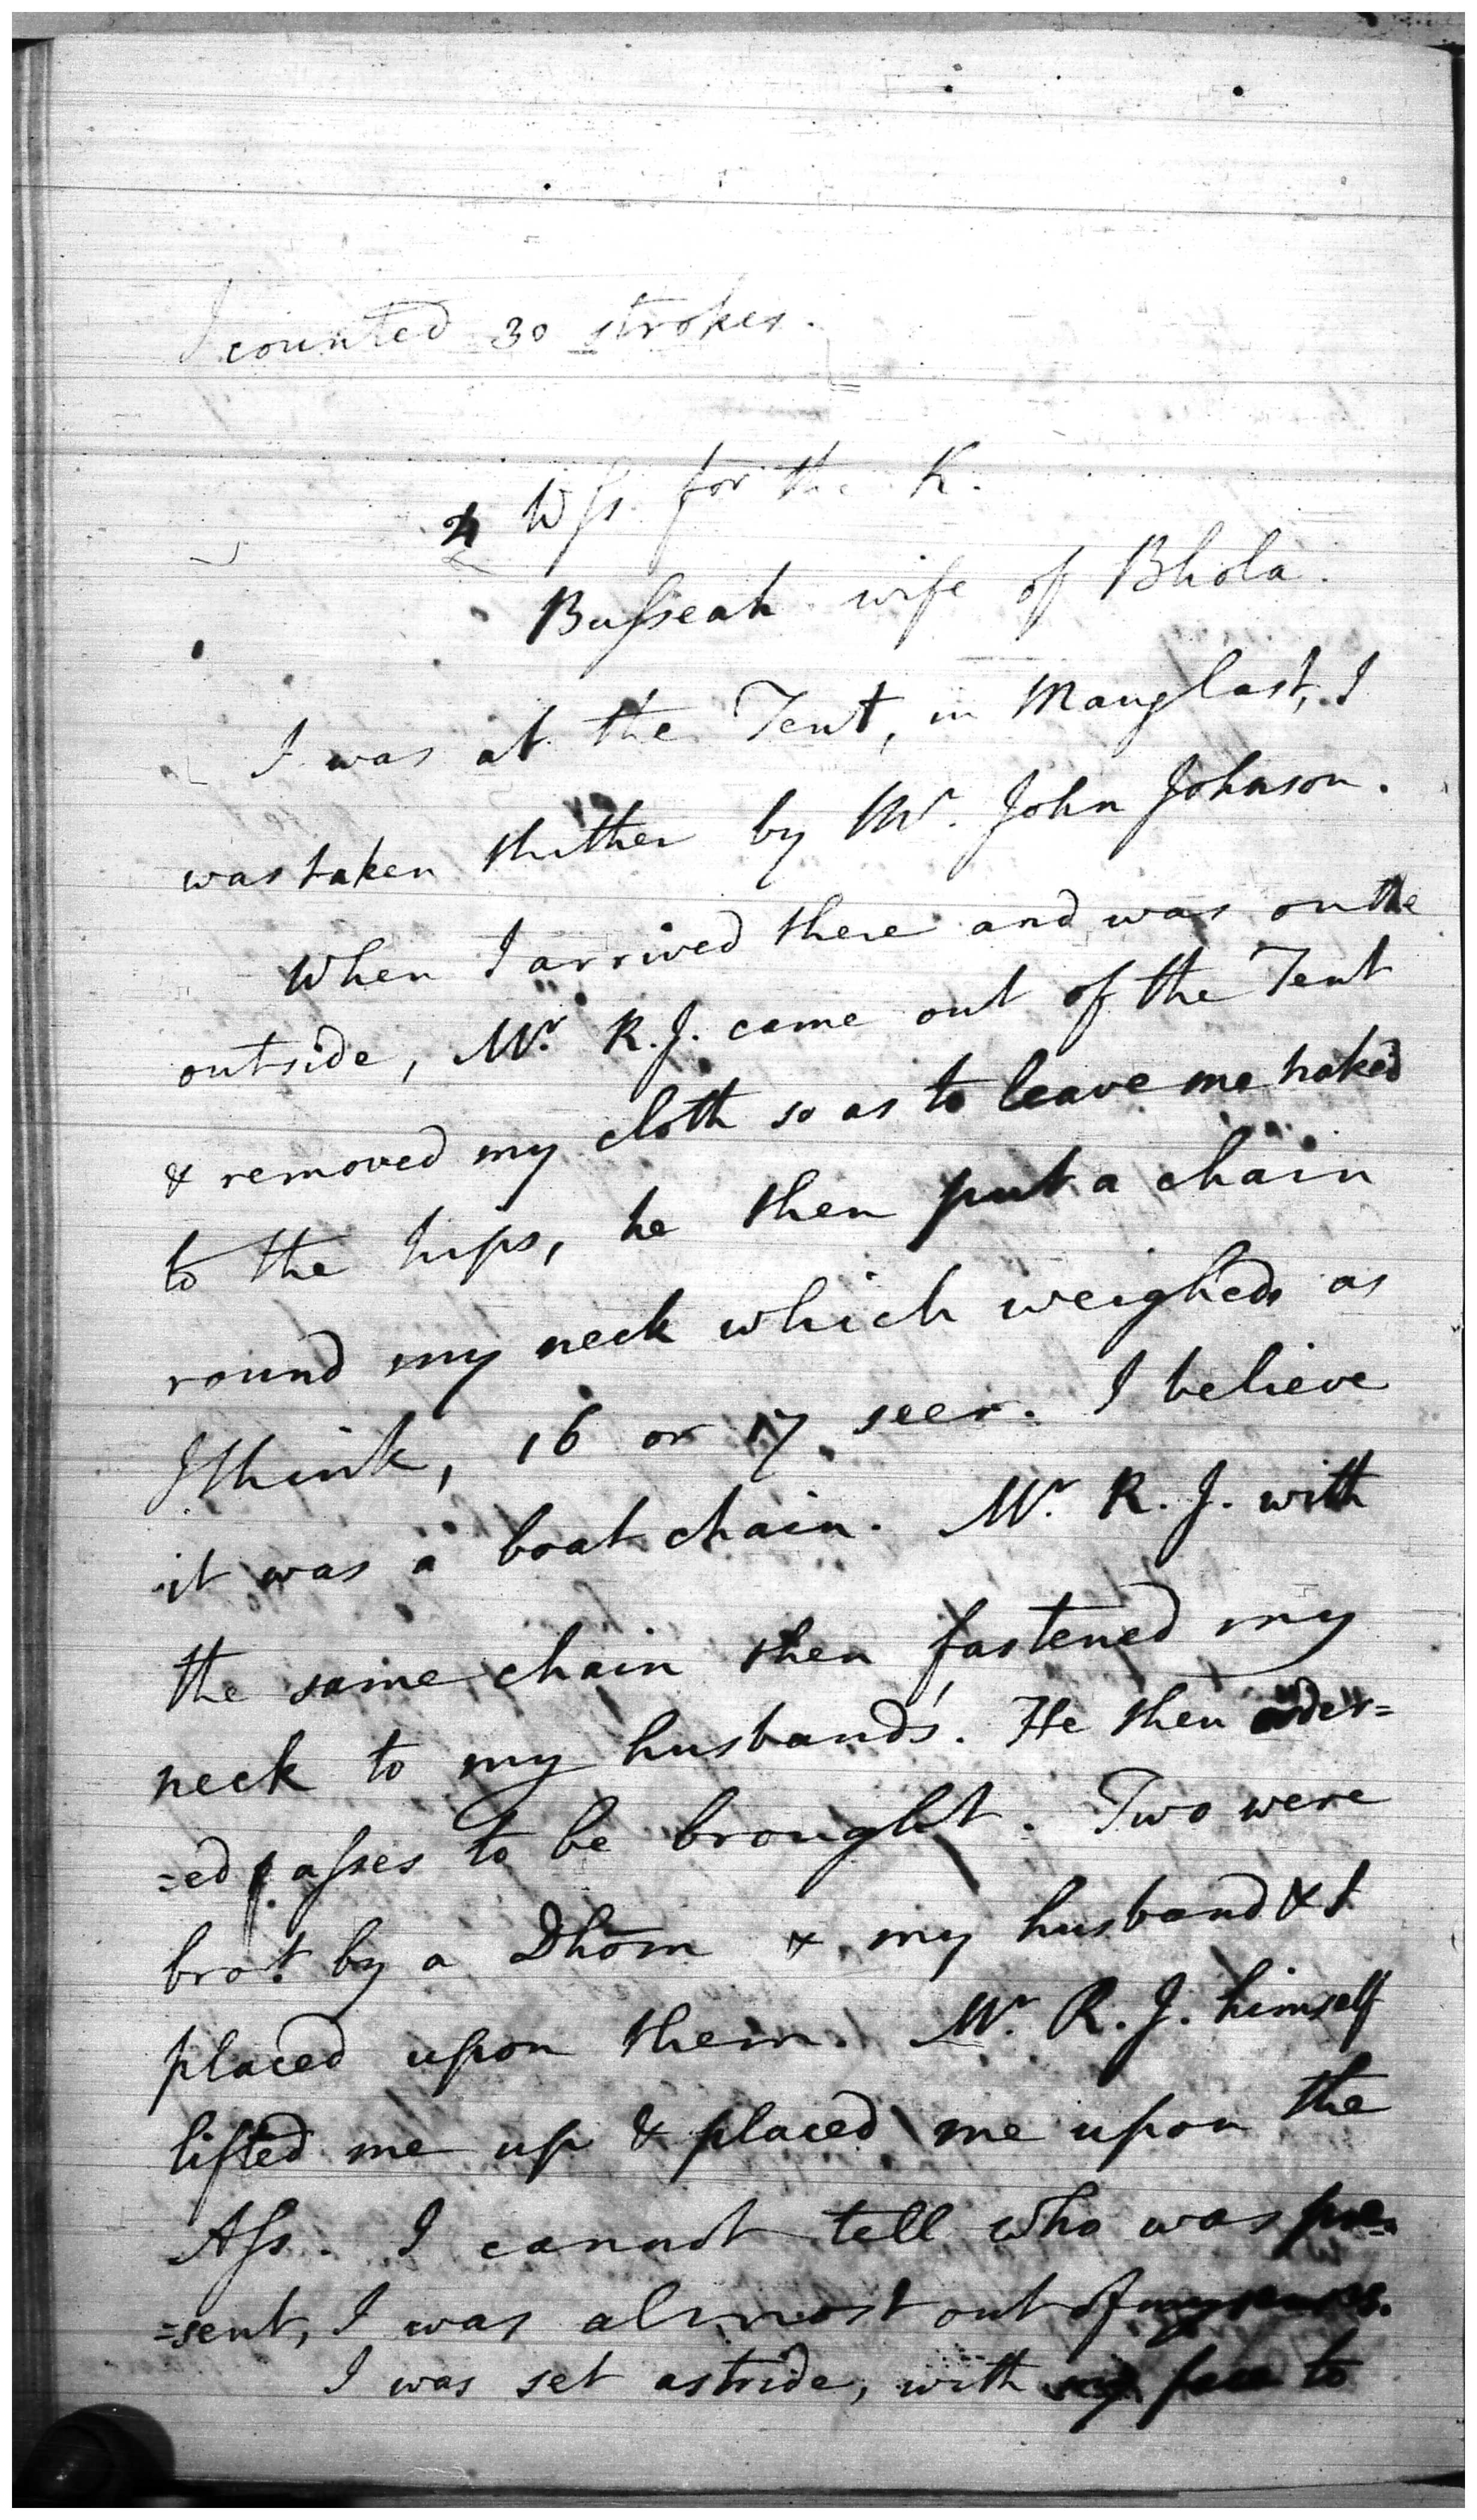 I counted 30 strokes.
4 Wſs. for the K.
Buſseah wife of Bhola.
I was at the Tent, in Maug last, I
was taken thither by Mr. John Johnson.
When I arrived there and was on the
outside, Mr. R. J. came out of the Tent
& removed my cloth so as to leave me naked
to the hips, he then put a chain
round my neck which weighed as
I think, 16 or 17 seer. I believe
it was a boat chain. Mr. R. J. with
the same chain then fastened my
neck to my husband's. He then order=
=ed aſses to be brought. Two were
brot. by a Dhōm & my husband & I
placed upon them. Mr. R. J. himself
lifted me up & placed me upon the
Aſs. I cannot tell who was pre=
=sent, I was almost out of my
I was set astride, with my face to